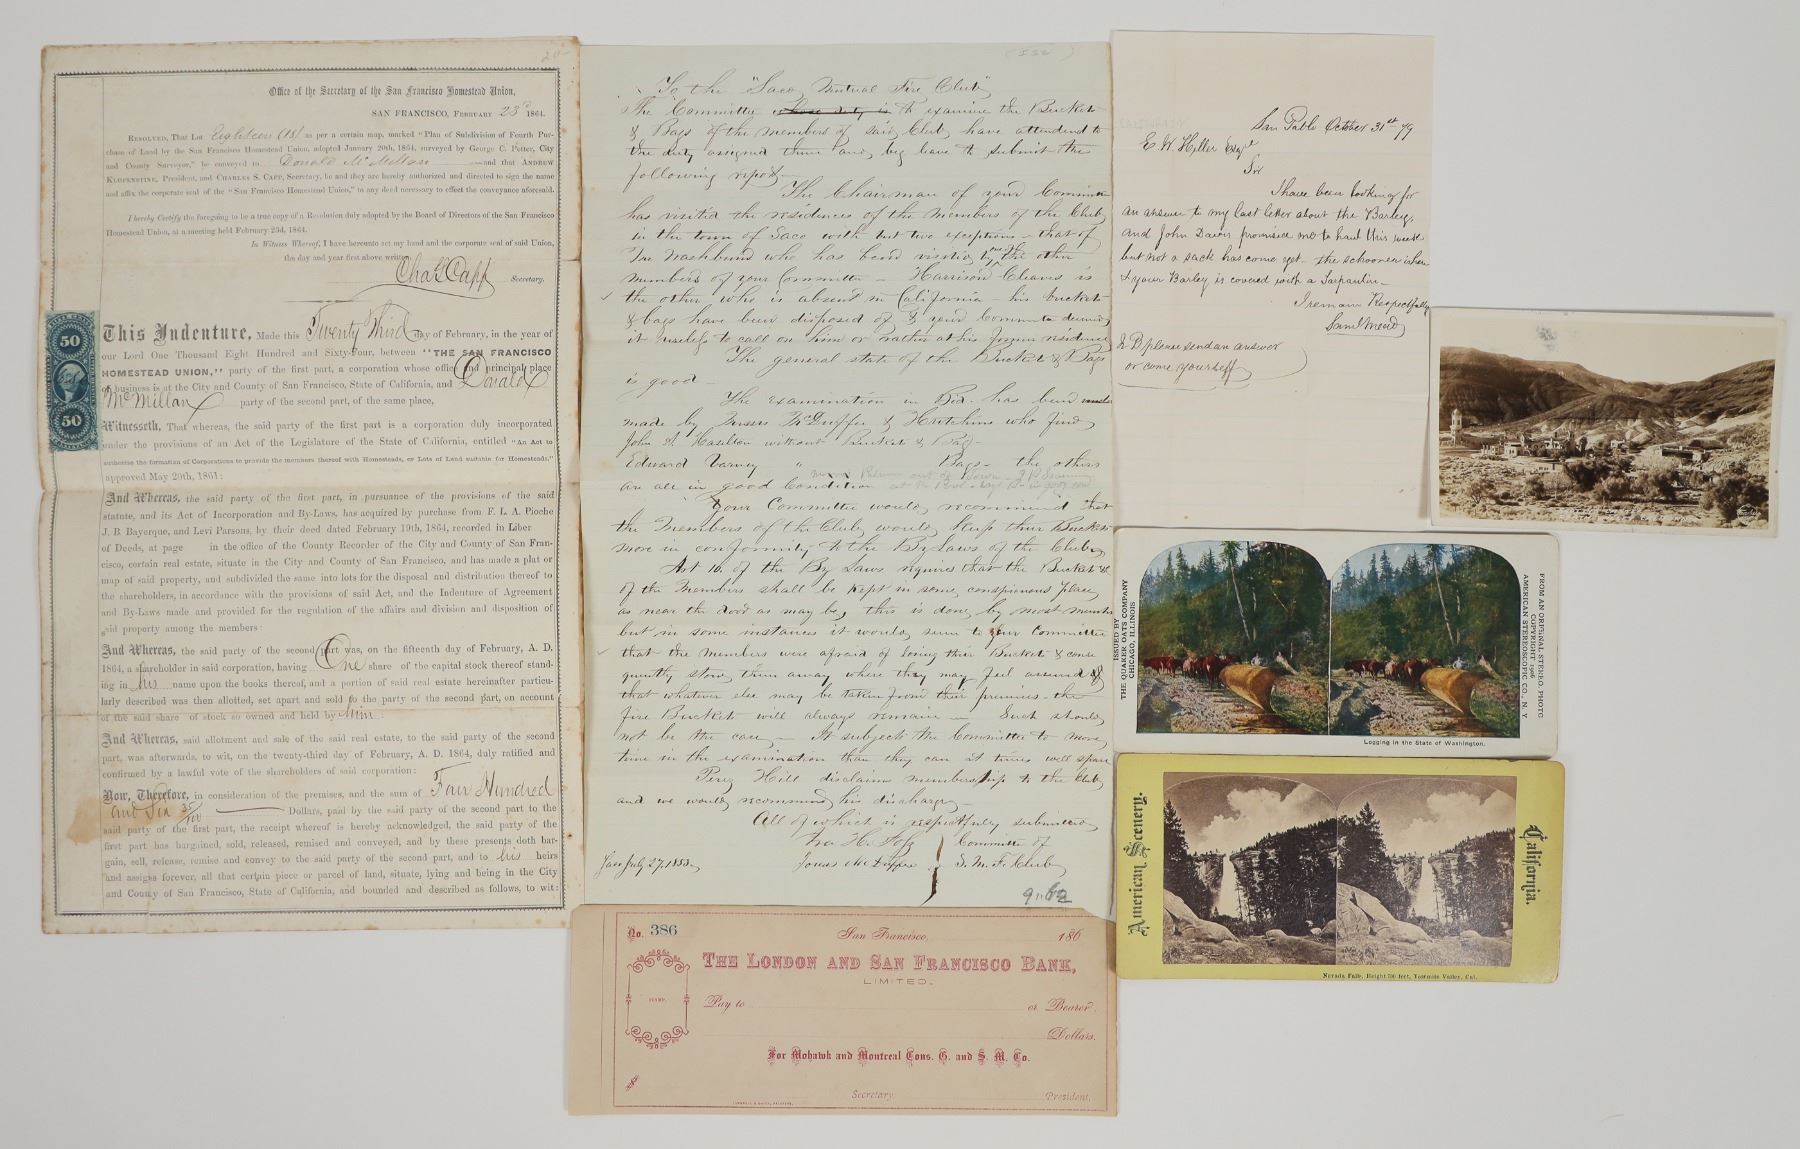 20-
Office of the Secretary of the San Francisco Homestead Union,
SAN FRANCISCO, FEBRUARY 23d 1864.
RESOLVED, That Lot Eighteen (18) as per a certain map, marked "Plan of Subdivision of Fourth Pur-
chase of Land by the San Francisco Homestead Union, adopted January 20th, 1864, surveyed by George C. Potter, City
and County Surveyor," be conveyed to Donald McMillan and that ANDREW
KLOPENSTINE, President, and CHARLES S. CAPP, Secretary, be and they are hereby authorized and directed to sign the name
and affix the corporate seal of the "San Francisco Homestead Union," to any deed necessary to effect the conveyance aforesaid.
I hereby Certify the foregoing to be a true copy of a Resolution duly adopted by the Board of Directors of the San Francisco
Homestead Union, at a meeting held February 23d, 1864.
In Witness Whereof, I have hereunto set my hand and the corporate seal of said Union,
the day and year first above written.
Chas. S. Capp Secretary.
This Indenture, Made this Twenty Third day of February, in the year of
our Lord One Thousand Eight Hundred and Sixty-Four, between "THE SAN FRANCISCO
HOMESTEAD UNION," party of the first part, a corporation whose office and principal place
of business is at the City and County of San Francisco, State of California, and Donald
McMillan party of the second part, of the same place,
Witnesseth, That whereas, the said party of the first part is a corporation duly incorporated
under the provisions of an Act of the Legislature of the State of California, entitled "An Act to
authorize the formation of Corporations to provide the members thereof with Homesteads, or Lots of Land suitable for Homesteads,"
approved May 20th, 1861:
And Whereas, the said party of the first part, in pursuance of the provisions of the said
statute, and its Act of Incorporation and By-Laws, has acquired by purchase from F. L. A. Pioche
J. B. Bayerque, and Levi Parsons, by their deed dated February 19th, 1864, recorded in Liber
of Deeds, at page in the office of the County Recorder of the City and County of San Fran-
cisco, certain real estate, situate in the City and County of San Francisco, and has made a plat or
map of said property, and subdivided the same into lots for the disposal and distribution thereof to
the shareholders, in accordance with the provisions of said Act, and the Indenture of Agreement
and By-Laws made and provided for the regulation of the affairs and division and disposition of
said property among the members:
And Whereas, the said party of the second part was, on the fifteenth day of February, A. D.
1864, a shareholder in said corporation, having One share of the capital stock thereof stand-
ing in his name upon the books thereof, and a portion of said real estate hereinafter particu-
larly described was then allotted, set apart and sold to the party of the second part, on account
of the said share of stock so owned and held by him:
And Whereas, said allotment and sale of the said real estate, to the said party of the second
part, was afterwards, to wit, on the twenty-third day of February, A. D. 1864, duly ratified and
confirmed by a lawful vote of the shareholders of said corporation:
Now, Therefore, in consideration of the premises, and the sum of Four Hundred
and Six 35/100 Dollars, paid by the said party of the second part to the
said party of the first part, the receipt whereof is hereby acknowledged, the said party of the
first part has bargained, sold, released, remised and conveyed, and by these presents doth bar-
gain, sell, release, remise and convey to the said party of the second part, and to his heirs
and assigns forever, all that certain piece or parcel of land, situate, lying and being in the City
and County of San Francisco, State of California, and bounded and described as follows, to wit:
FIFTY CENTS
50
50
To the "Saco Mutual Fire Club"
The Committee whose duty is to examine the Buckets
& Bags of the members of said Club, have attended to
the duty assigned them and beg leave to submit the
following report -
The Chairman of your Committee
has visited the residences of the members of the Club,
in the town of Saco with but two exceptions - that of
Washburn who has been visited by one of the other
members of your Committee - Harrison Cleaves is
the other who is absent in California - his buckets
& bags have been disposed of & your Committee deemed
it useless to call on him or rather at his former residence
The general state of the Buckets & Bags
is good -
The examination in Bid. has been made
made by Messrs McDuffee & Hutchins who find
John A. Haselton without Buckets & Bags -
Edward Varney " Bags - the others
are all in good Condition
Your Committee would recommend that
the members of the Club, would keep their Buckets
more in conformity to the By Laws of the Club
Art 10. of the By Laws requires that the Buckets &c
of the Members shall be kept in some conspicuous place,
as near the door as may be, this is done, by most members
but in some instances it would seem to your Committee
that the members were afraid of losing their Buckets & conse
quently stow them away where they may feel assured
that whatever else may be taken from their premises - the
fire Buckets will always remain - Such should
not be the case, - It subjects the Committee to more
time in the examination than they can at times well spare
Perez Hill disclaims membership to the Club,
and we would recommend his discharge -
All of which is respectfully submitted
Ira H. Foss Committee of
Saco July 27, 1853, Jones McDuffee S. M. F. Club
San Pablo October 31st 79
E W Hiller Esqr
Sir
I have been looking for
an answer to my last letter about the Barley,
and John Davis promised me to haul this week
but not a sack has come yet - the schooner is here
& your Barley is covered with a Tarpaulin -
I remain Respectfully
Saml Mead
N B please send an answer
or come yourself
ISSUED BY
THE QUAKER OATS COMPANY
CHICAGO, ILLINOIS
FROM AN ORIGINAL STEREO. PHOTO
COPYRIGHT 1906
AMERICAN STEREOSCOPIC CO., N. Y.
Logging in the State of Washington.
American Scenery.
California.
Nevada Falls, Height 700 feet, Yosemite Valley, Cal.
No. 386 San Francisco, 186
THE LONDON AND SAN FRANCISCO BANK,
LIMITED.
STAMP.
Pay to or Bearer.
Dollars.
For Mohawk and Montreal Cons. G. and S. M. Co.
Secretary. President.